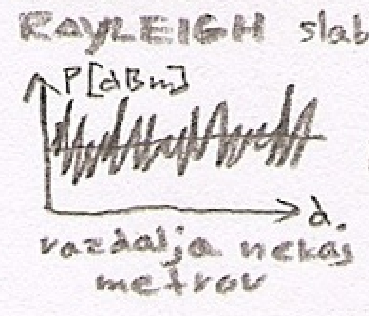 RAYLEIGH slab
P[dBm]
d.
razdalja nekaj
metrov